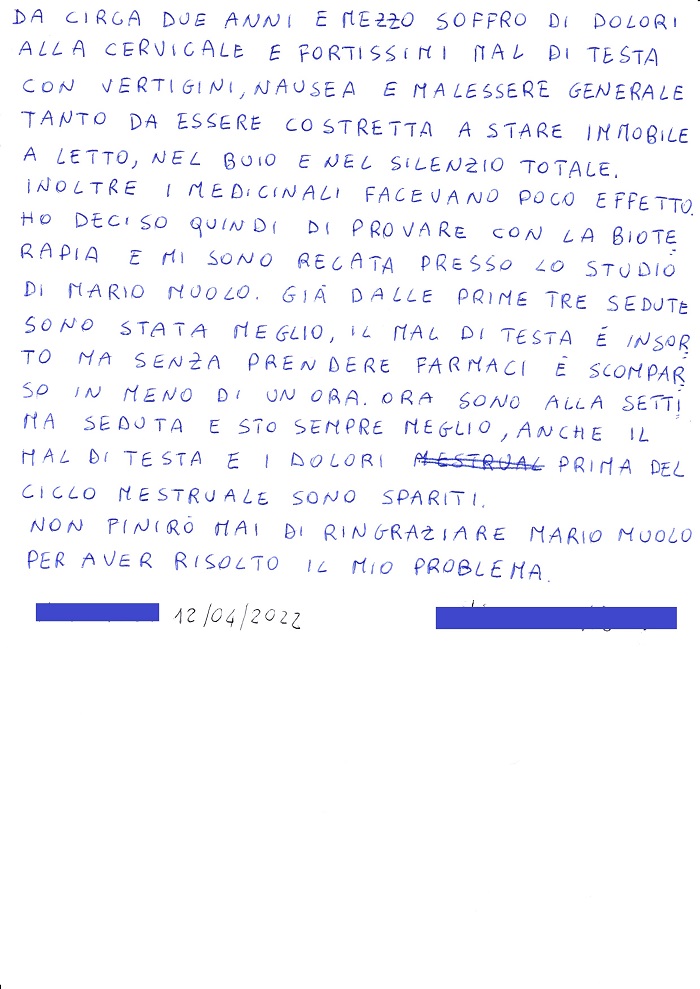 DA CIRCA DUE ANNI E MEZZO SOFFRO DI DOLORI
ALLA CERVICALE E FORTISSIMI MAL DI TESTA
CON VERTIGINI, NAUSEA E MALESSERE GENERALE
TANTO DA ESSERE COSTRETTA A STARE IMMOBILE
A LETTO, NEL BUIO E NEL SILENZIO TOTALE.
INOLTRE I MEDICINALI FACEVANO POCO EFFETTO.
HO DECISO QUINDI DI PROVARE CON LA BIOTE
RAPIA E MI SONO RECATA PRESSO LO STUDIO
DI MARIO MUOLO. GIÀ DALLE PRIME TRE SEDUTE
SONO STATA MEGLIO, IL MAL DI TESTA È INSOR
TO MA SENZA PRENDERE FARMACI È SCOMPAR
SO IN MENO DI UN ORA. ORA SONO ALLA SETTI
MA SEDUTA E STO SEMPRE MEGLIO, ANCHE IL
MAL DI TESTA E I DOLORI MESTRUAL PRIMA DEL
CICLO MESTRUALE SONO SPARITI.
NON FINIRÒ MAI DI RINGRAZIARE MARIO MUOLO
PER AVER RISOLTO IL MIO PROBLEMA.
12/04/2022